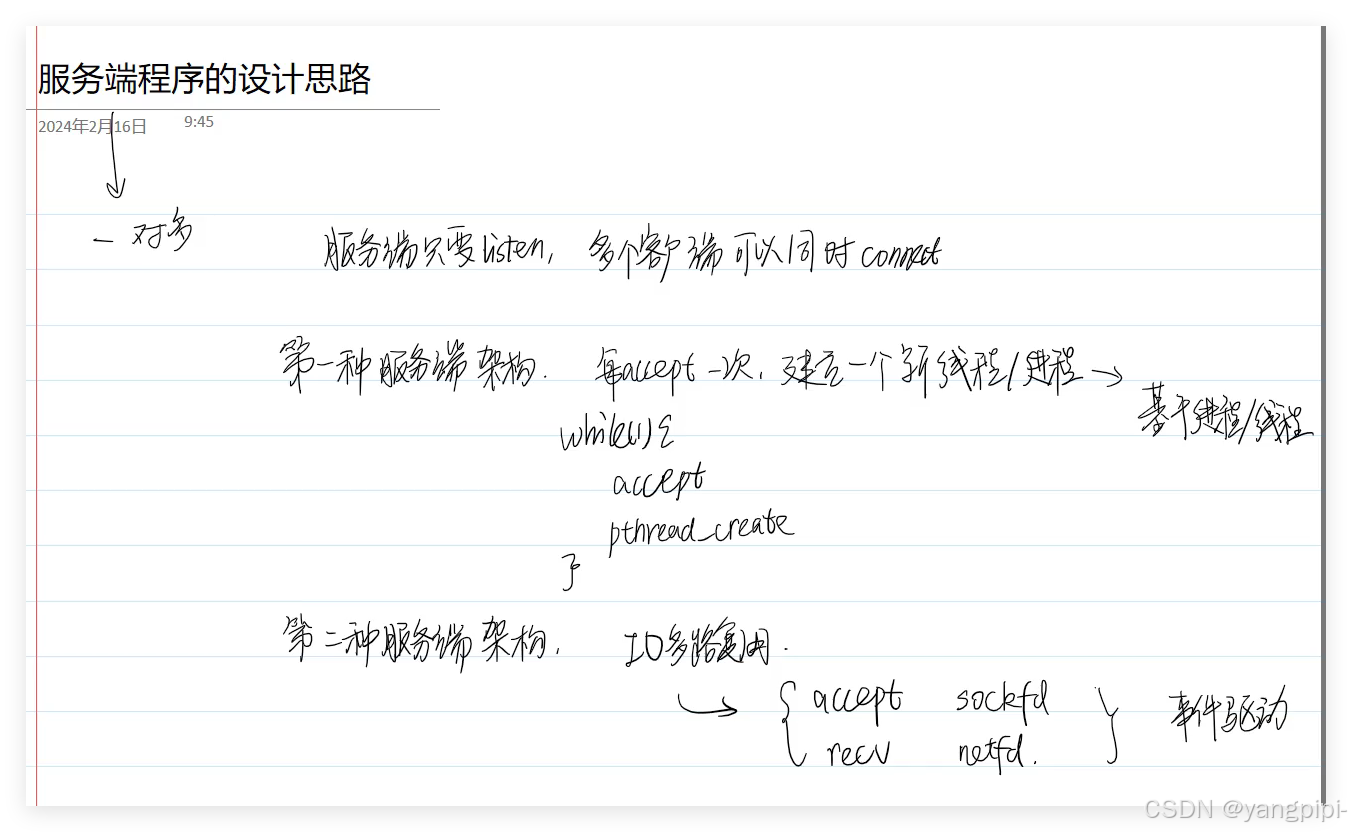 服务端程序的设计思路
2024年2月16日 9:45
一对多
服务端只要listen, 多个客户端可以同时connect
第一种服务端架构. 每accept一次, 建立一个新线程/进程 → 基于进程/线程
while(1){
accept
pthread_create
}
第二种服务端架构. IO多路复用.
{ accept sockfd } 事件驱动
recv netfd.
CSDN @yangpipi-